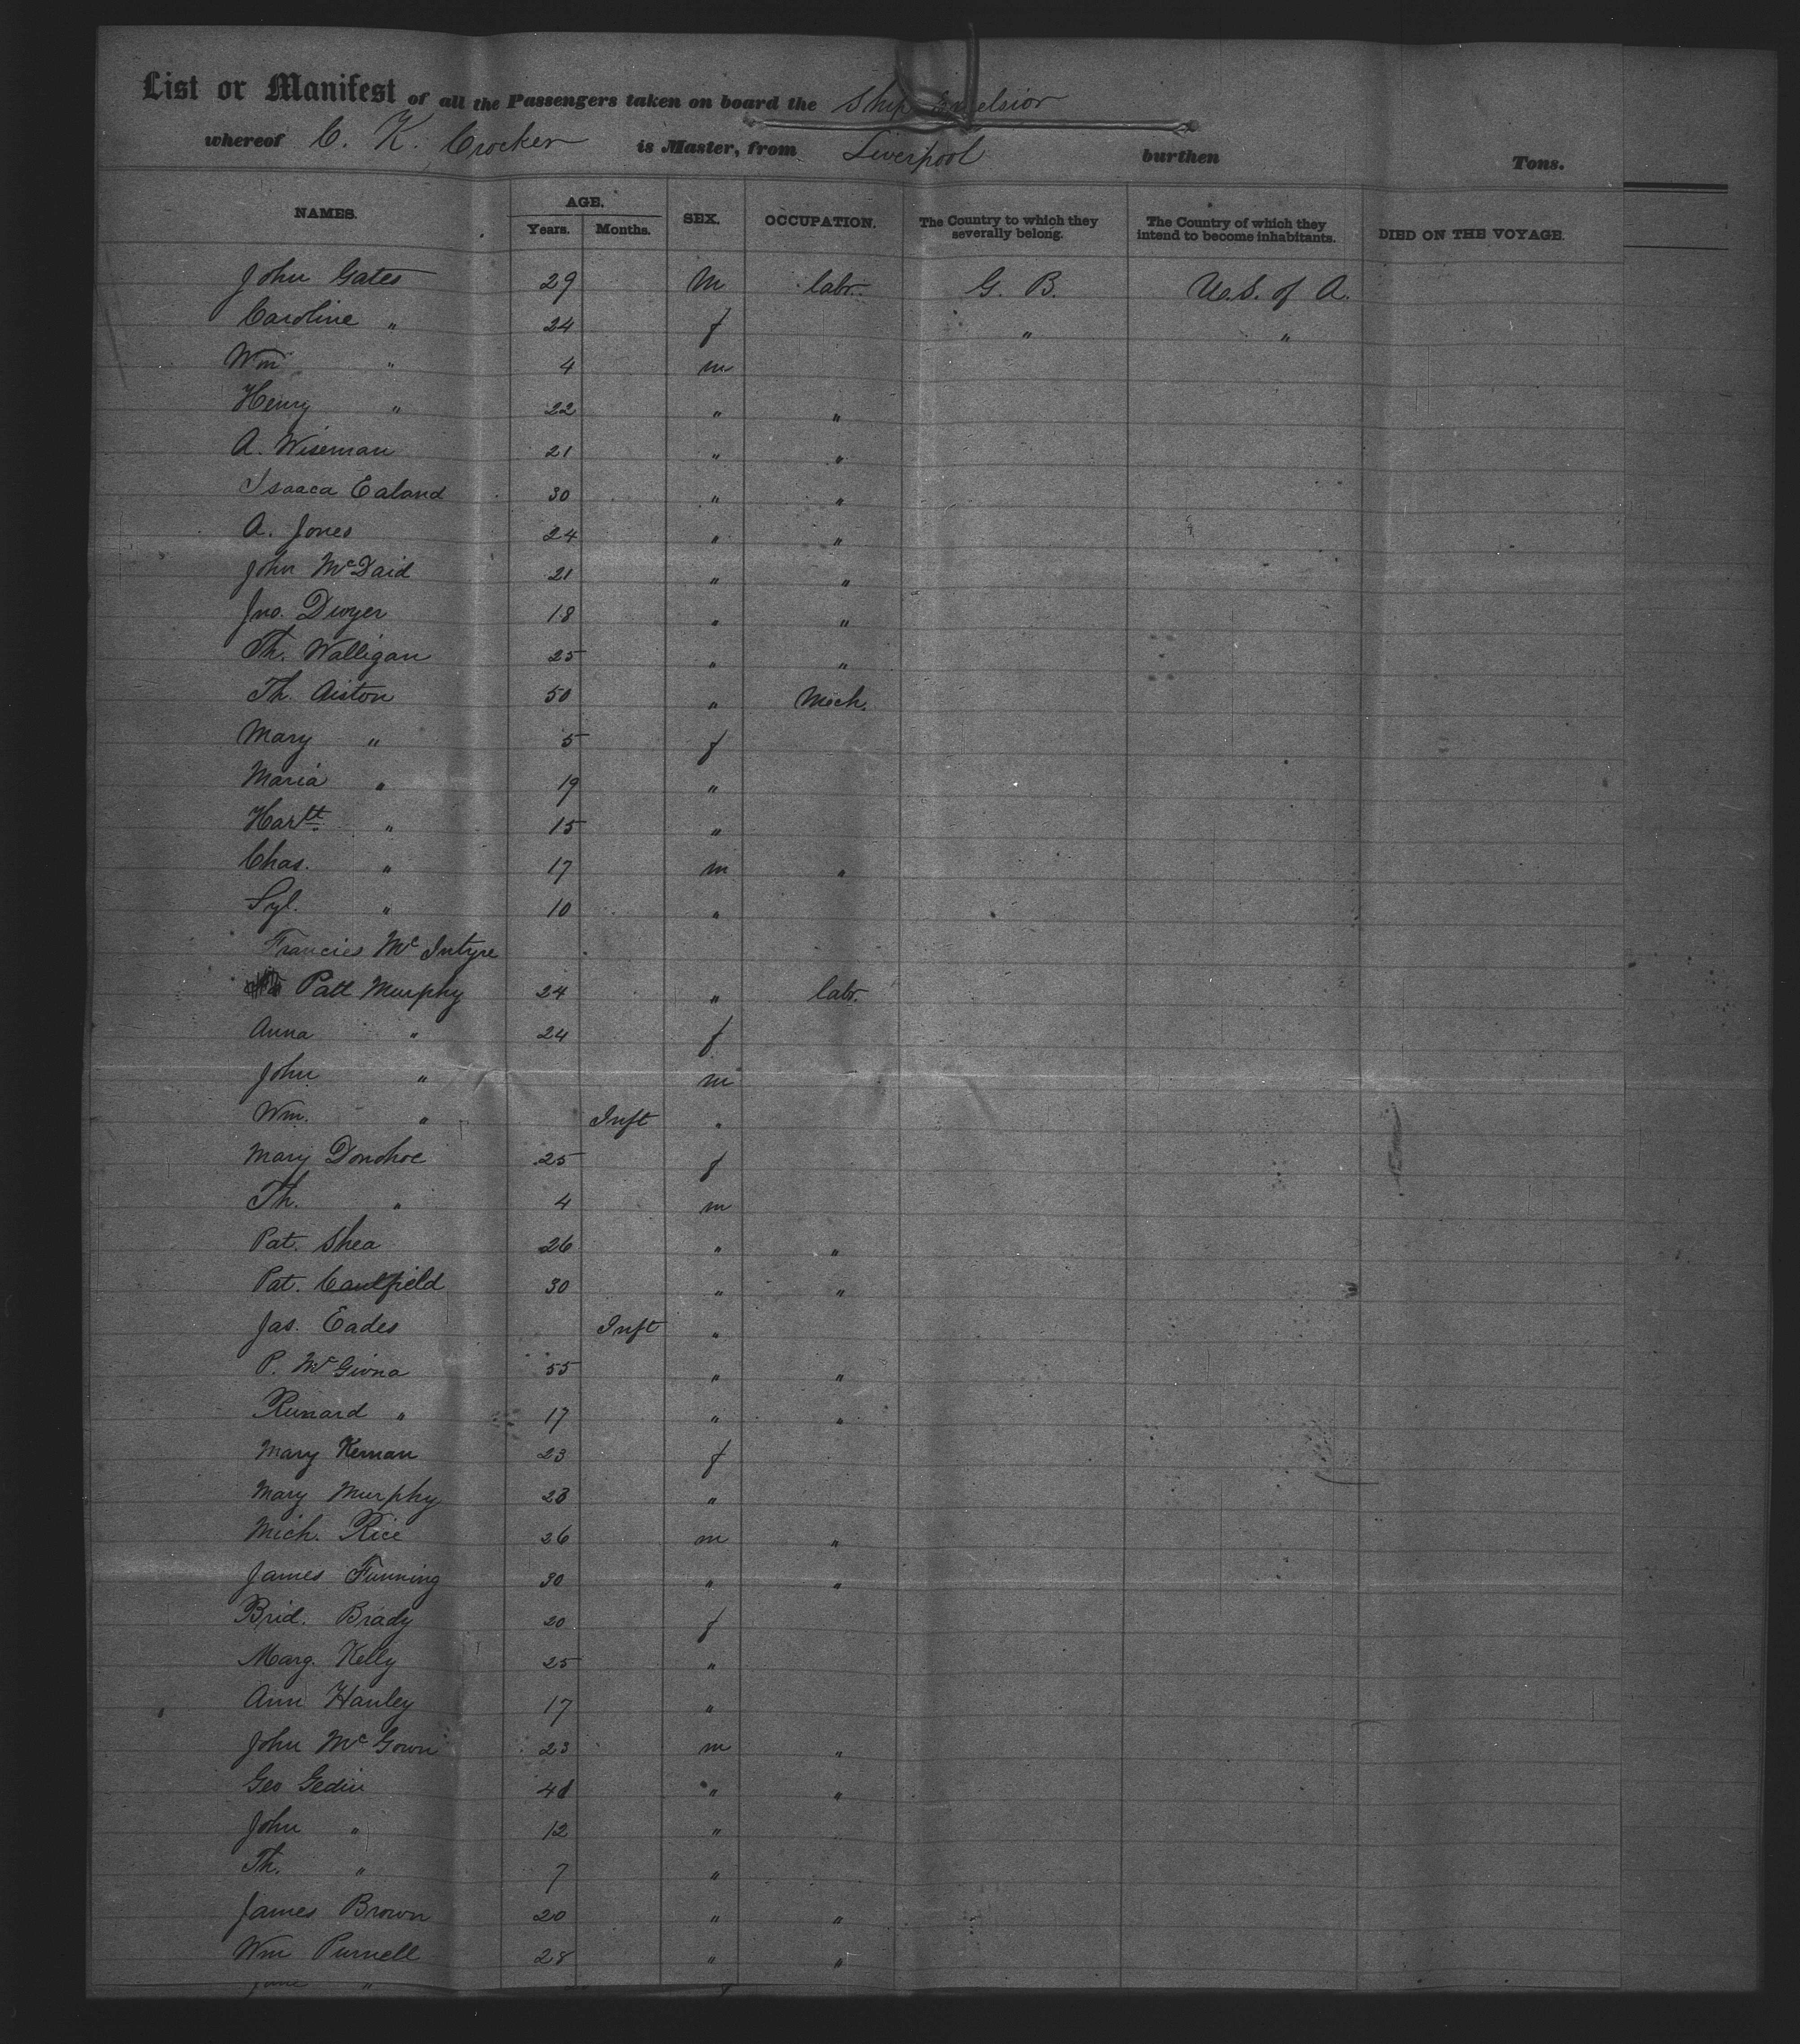 List or Manifest of all the Passengers taken on board the Ship Excelsior
whereof C. K. Crocker is Master, from Liverpool burthen Tons.
NAMES. AGE. Years. Months. SEX. OCCUPATION. The Country to which they severally belong. The Country of which they intend to become inhabitants. DIED ON THE VOYAGE.
John Gates 29 M labr. G. B. U.S. of A.
Caroline " 24 f " "
Wm " 4 m
Henry " 22 " "
A. Wiseman 21 " "
Isaaca Ealand 30 " "
A. Jones 24 " "
John McDaid 21 " "
Jno. Dwyer 18 " "
Th. Walligan 25 " "
Th. Aiston 50 " Mech.
Mary " 5 f
Maria " 19 "
Hartt. " 15 "
Chas. " 17 m "
Syl. " 10 "
Francies McIntyre
Patt Murphy 24 " labr.
Anna " 24 f
John " m
Wm. " Inft "
Mary Donohoe 25 f
Th. " 4 m
Pat. Shea 26 " "
Pat. Caulfield 30 " "
Jas. Eades Inft "
P. McGivna 55 " "
Runard " 17 " "
Mary Kernan 23 f
Mary Murphy 23 "
Mich. Rice 26 m "
James Funning 30 " "
Brid. Brady 20 f
Marg. Kelly 25 "
Ann Hanley 17 "
John McGown 23 m "
Geo Gedin 48 " "
John " 12 "
Th. " 7 "
James Brown 20 " "
Wm Purnell 28 " "
Jane " f